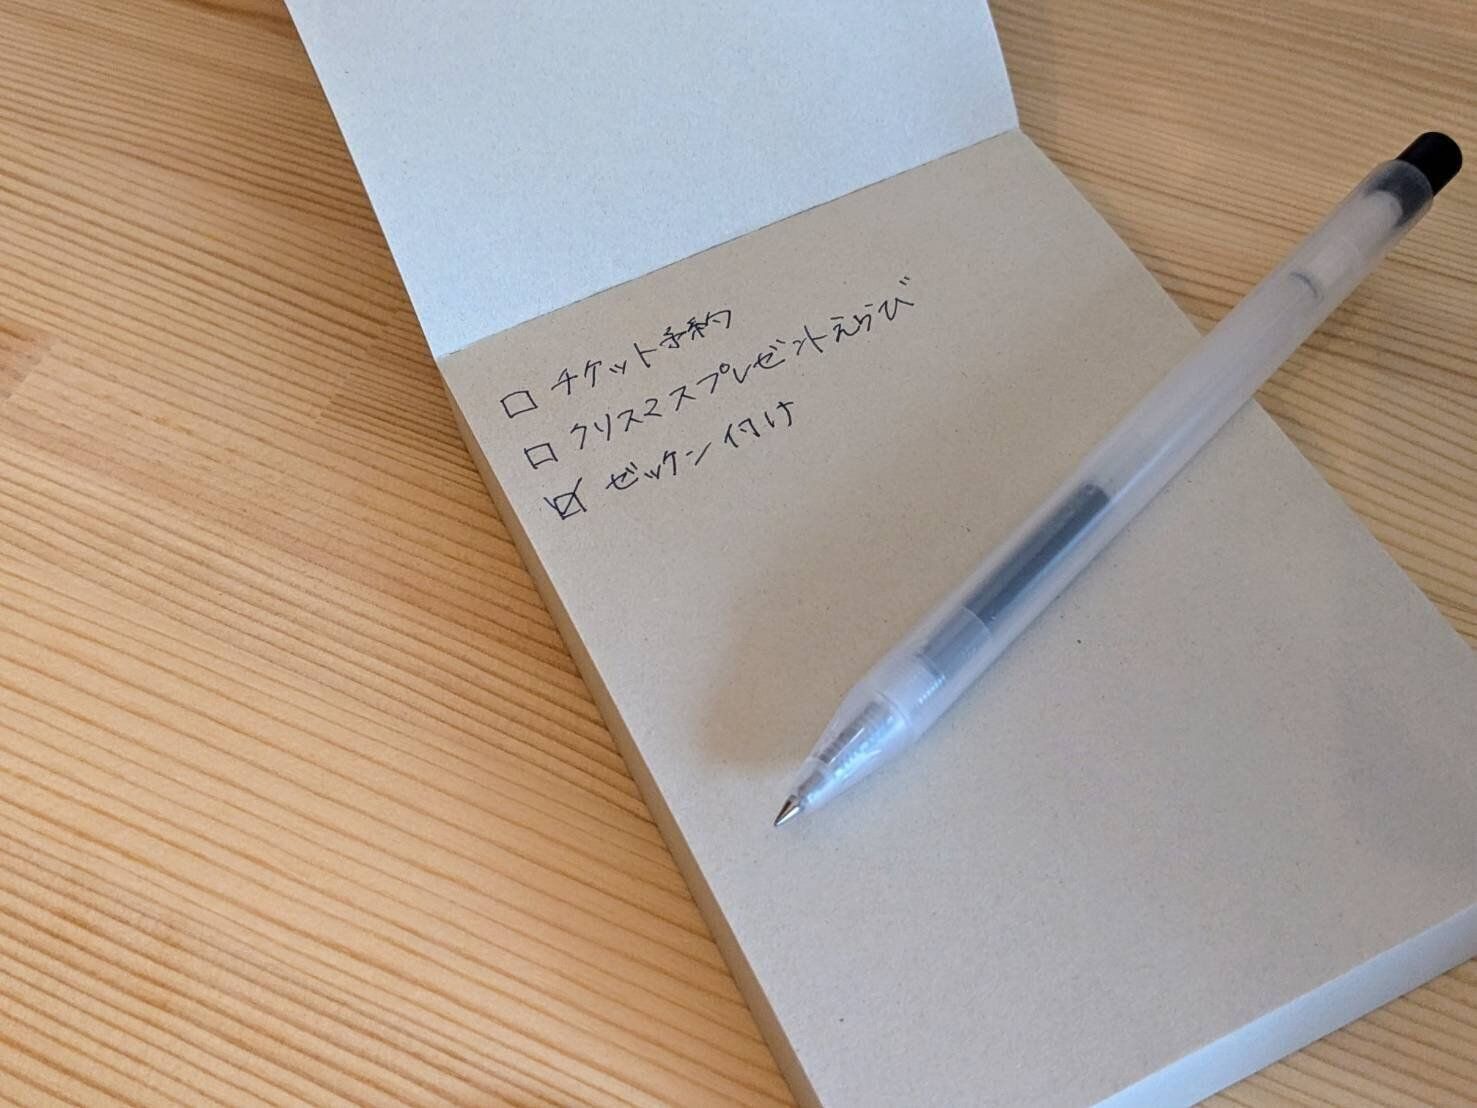 □ チケット予約
□ クリスマスプレゼントえらび
☑ ゼッケン付け